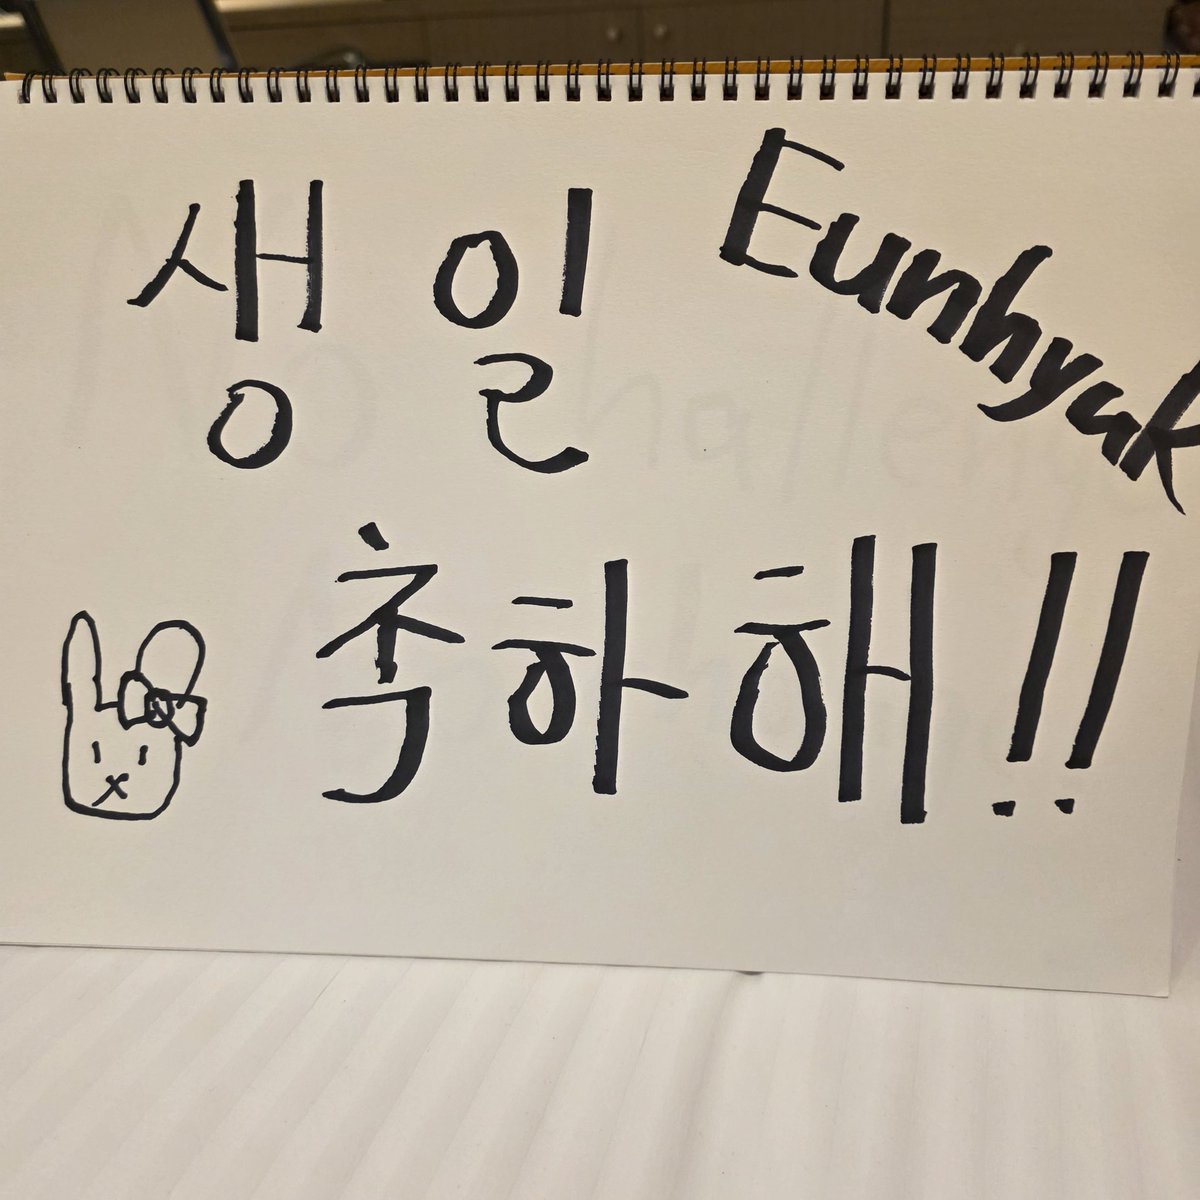 생일
Eunhyuk
축하해!!